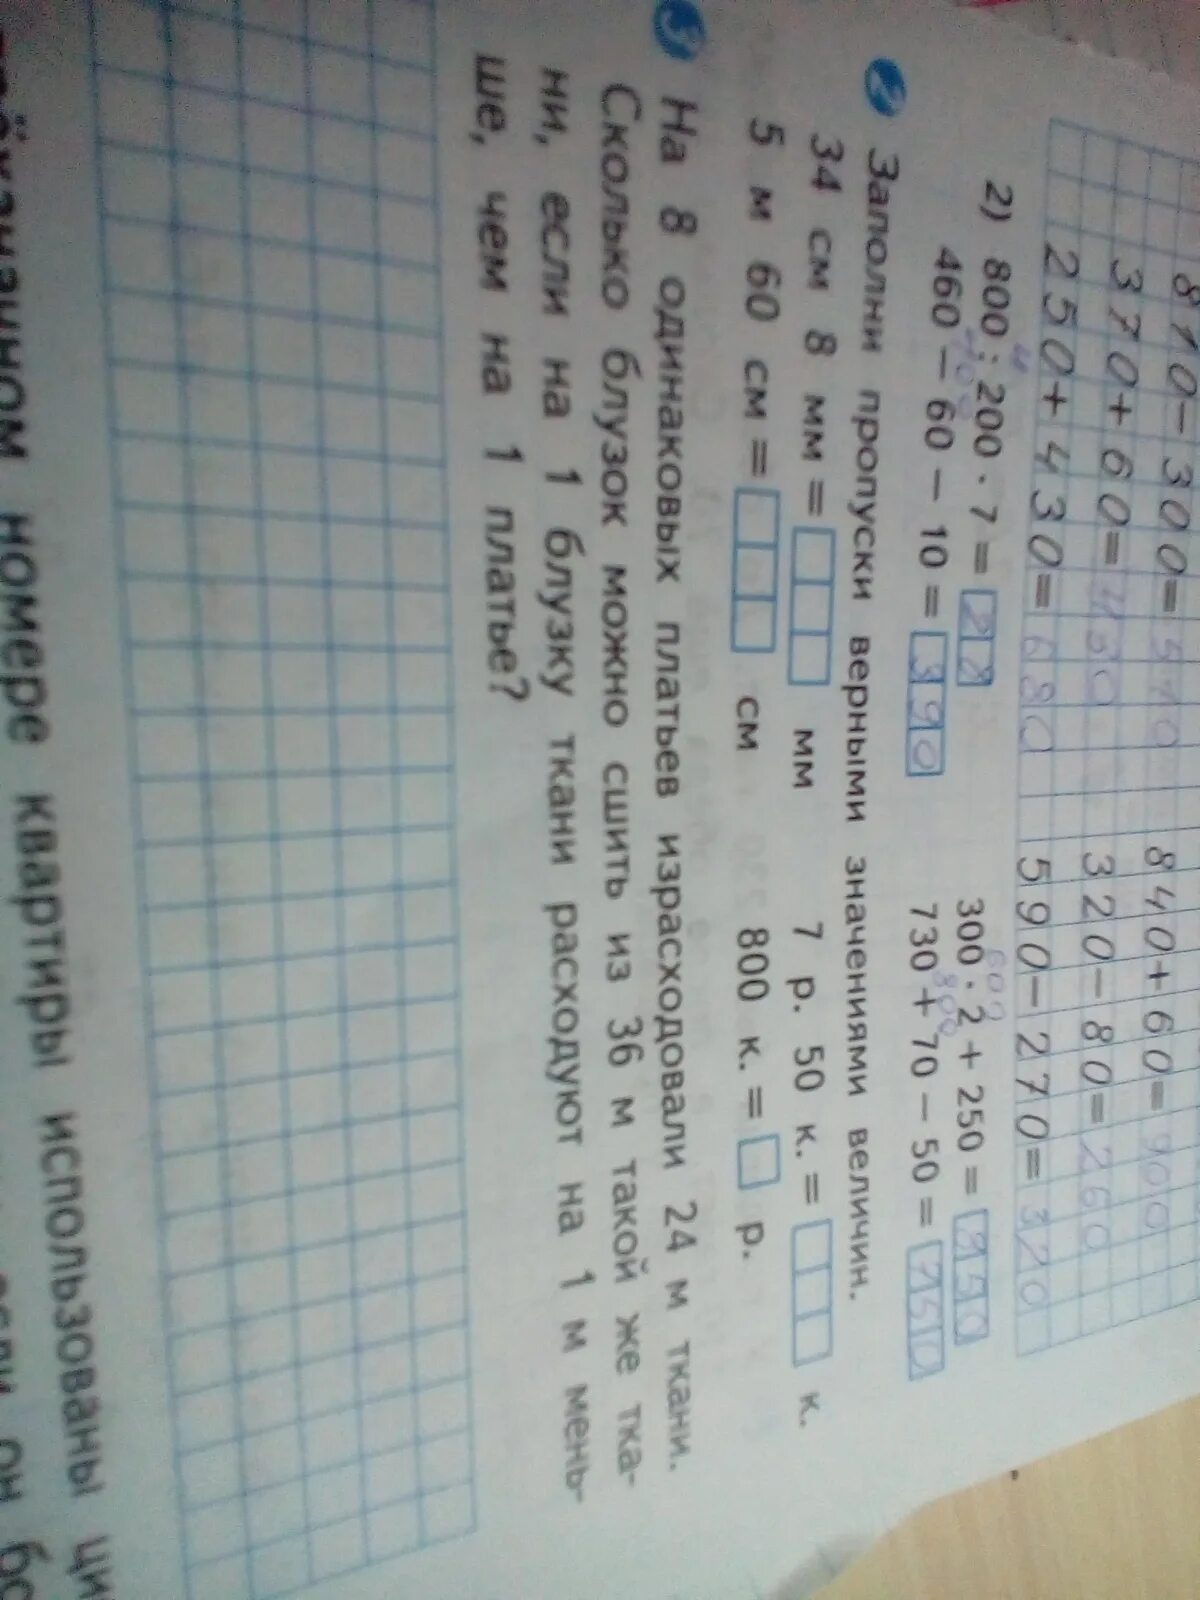 810-300=510 840+60=900
370+60=430 320-80=260
250+430=680 590-270=320
2) 800 : 200 · 7 = 28 300 · 2 + 250 = 850
460 − 60 − 10 = 390 730 + 70 − 50 = 750
2 Заполни пропуски верными значениями величин.
34 см 8 мм = мм 7 р. 50 к. = к.
5 м 60 см = см 800 к. = р.
3 На 8 одинаковых платьев израсходовали 24 м ткани.
Сколько блузок можно сшить из 36 м такой же тка-
ни, если на 1 блузку ткани расходуют на 1 м мень-
ше, чем на 1 платье?
номере квартиры использованы